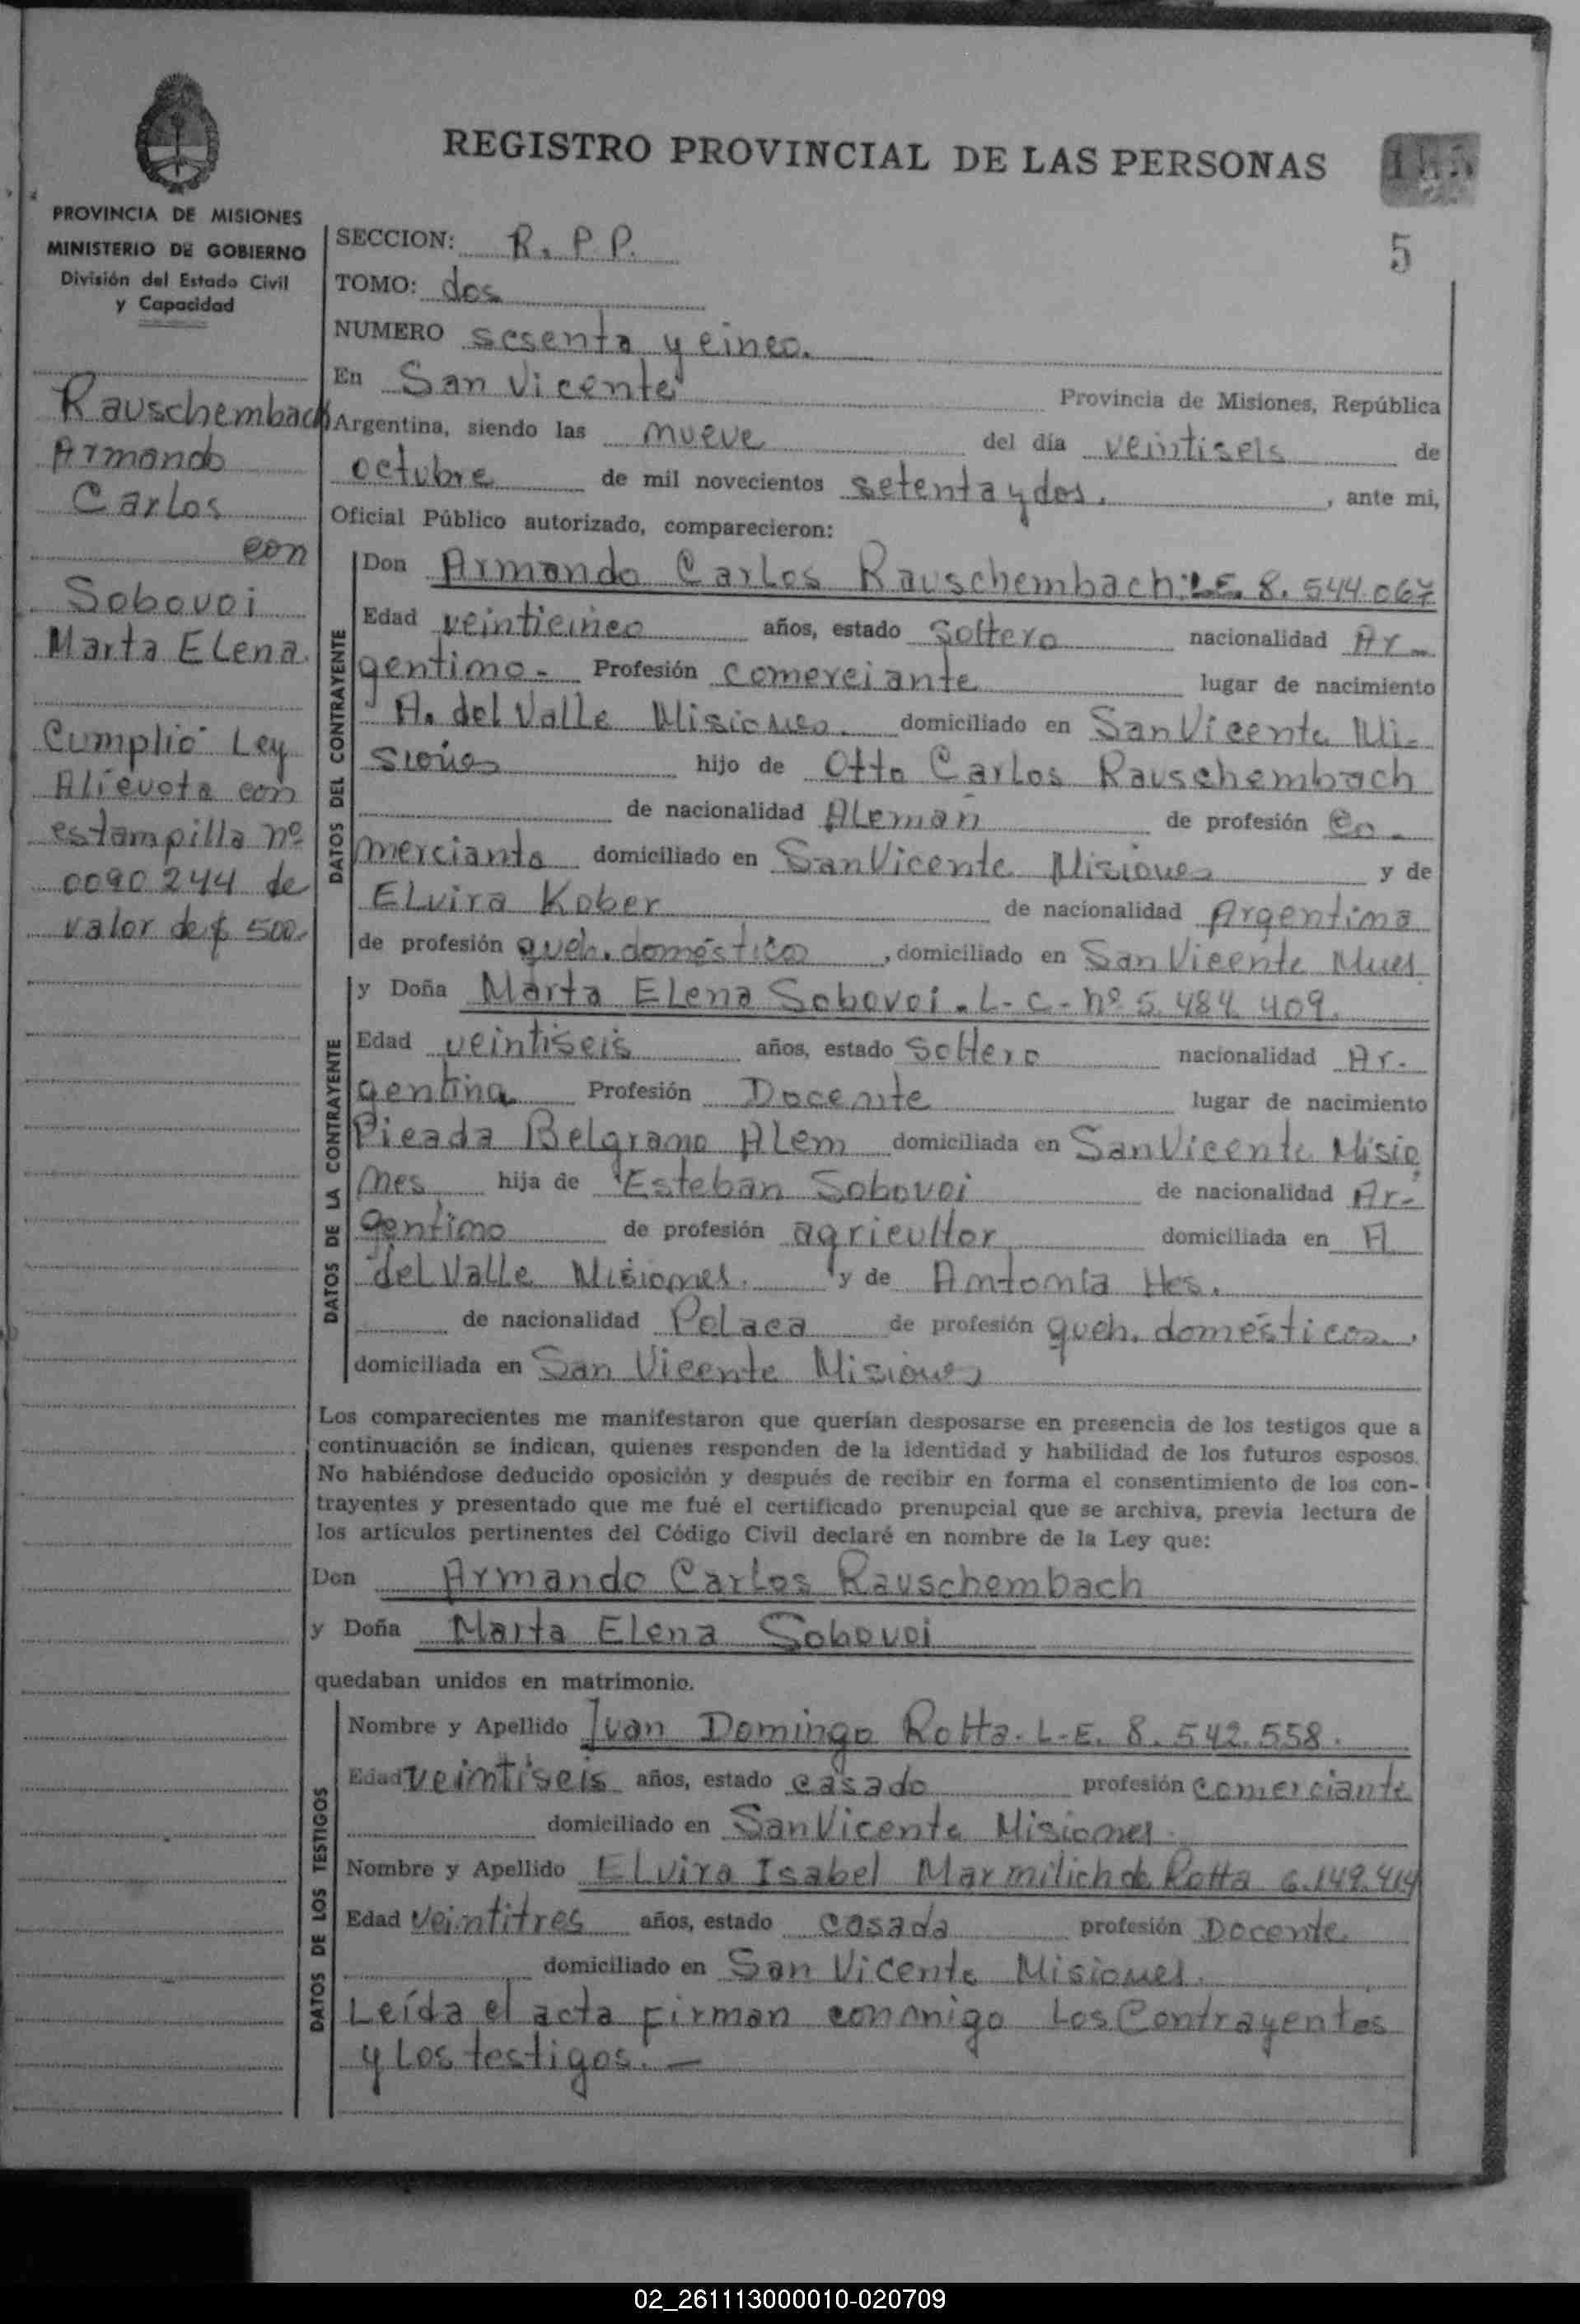 REGISTRO PROVINCIAL DE LAS PERSONAS
5
PROVINCIA DE MISIONES
MINISTERIO DE GOBIERNO
División del Estado Civil
y Capacidad
Rauschembach
Armando
Carlos
con
Sobovoi
Marta Elena.
Cumplió Ley
Alievota con
estampilla nº
0090244 de
valor de $ 500.
SECCION: R. P. P.
TOMO: dos
NUMERO sesenta y cinco.
En San Vicente Provincia de Misiones, República
Argentina, siendo las nueve del día veintiseis de
octubre de mil novecientos setenta y dos. , ante mi,
Oficial Público autorizado, comparecieron:
DATOS DEL CONTRAYENTE
Don Armando Carlos Rauschembach: L.E. 8.544.067
Edad veinticinco años, estado Soltero nacionalidad Ar-
gentino- Profesión comerciante lugar de nacimiento
A. del Valle Misiones. domiciliado en San Vicente Mi-
siones hijo de Otto Carlos Rauschembach
de nacionalidad Aleman de profesión Co-
merciante domiciliado en San Vicente Misiones y de
Elvira Kober de nacionalidad Argentina
de profesión queh. doméstico , domiciliado en San Vicente Mnes
DATOS DE LA CONTRAYENTE
y Doña Marta Elena Sobovoi. L-C-nº 5.484.409.
Edad veintiseis años, estado Soltera nacionalidad Ar-
gentina Profesión Docente lugar de nacimiento
Picada Belgrano Alem domiciliada en San Vicente Misio
nes hija de Esteban Sobovoi de nacionalidad Ar-
gentino de profesión agricultor domiciliada en A
del Valle Misiones. y de Antonia Hes.
de nacionalidad Polaca de profesión queh. domésticos.,
domiciliada en San Vicente Misiones
Los comparecientes me manifestaron que querían desposarse en presencia de los testigos que a
continuación se indican, quienes responden de la identidad y habilidad de los futuros esposos.
No habiéndose deducido oposición y después de recibir en forma el consentimiento de los con-
trayentes y presentado que me fué el certificado prenupcial que se archiva, previa lectura de
los artículos pertinentes del Código Civil declaré en nombre de la Ley que:
Don Armando Carlos Rauschembach
y Doña Marta Elena Sobovoi
quedaban unidos en matrimonio.
DATOS DE LOS TESTIGOS
Nombre y Apellido Juan Domingo Rotta. L-E. 8.542.558.
Edad veintiseis años, estado casado profesión comerciante
domiciliado en San Vicente Misiones.
Nombre y Apellido Elvira Isabel Marmilich de Rotta 6.149.414
Edad veintitres años, estado casada profesión Docente
domiciliado en San Vicente Misiones.
Leída el acta firman conmigo los Contrayentes
y los testigos.-
02_261113000010-020709